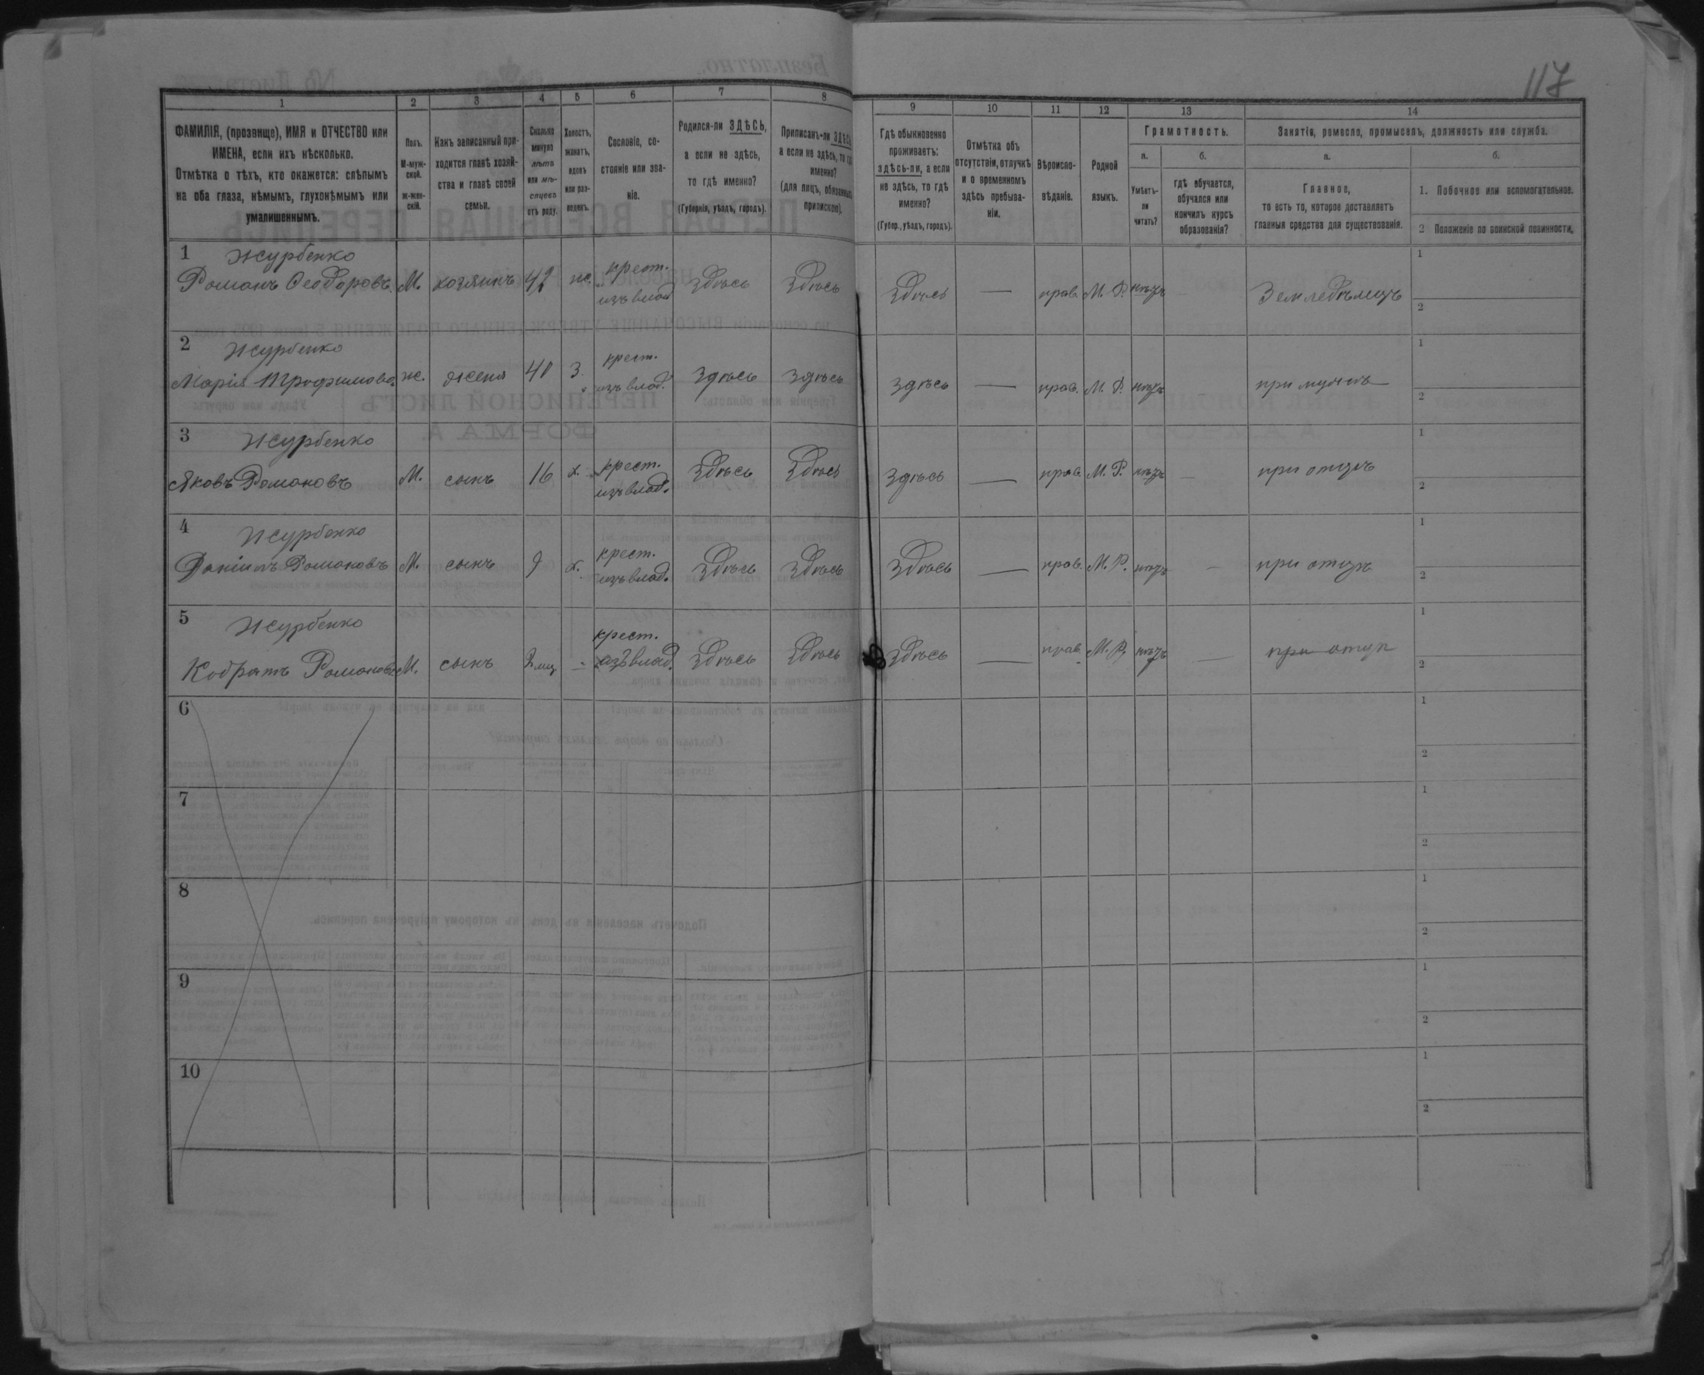 117
1
2
3
4
5
6
7
8
9
10
11
12
13
14
ФАМИЛІЯ, (прозвище), ИМЯ и ОТЧЕСТВО или
ИМЕНА, если ихъ нѣсколько.
Отмѣтка о тѣхъ, кто окажется: слѣпымъ
на оба глаза, нѣмымъ, глухонѣмымъ или
умалишеннымъ.
Полъ.
М-муж-
ской.
ж-жен-
скій.
Какъ записанный при-
ходится главѣ хозяй-
ства и главѣ своей
семьи.
Сколько
минуло
лѣтъ
или мѣ-
сяцевъ
отъ роду.
Холостъ,
женатъ,
вдовъ
или раз-
веденъ.
Сословіе, со-
стояніе или зва-
ніе.
Родился-ли ЗДѢСЬ,
а если не здѣсь,
то гдѣ именно?
(Губернія, уѣздъ, городъ).
Приписанъ-ли ЗДѢСЬ
а если не здѣсь, то гдѣ
именно?
(для лицъ, обязанныхъ
припиской).
Гдѣ обыкновенно
проживаетъ:
здѣсь-ли, а если
не здѣсь, то гдѣ
именно?
(Губер., уѣздъ, городъ).
Отмѣтка объ
отсутствіи, отлучкѣ
и о временномъ
здѣсь пребыва-
ніи.
Вѣроиспо-
вѣданіе.
Родной
языкъ.
Грамотность.
а.
Умѣетъ-
ли
читать?
б.
гдѣ обучается,
обучался или
кончилъ курсъ
образованія?
Занятія, ремесло, промыселъ, должность или служба.
а.
Главное,
то есть то, которое доставляетъ
главныя средства для существованія.
б.
1. Побочное или вспомогательное.
2 Положеніе по воинской повинности.
1 Журбенко
Романъ Ѳеодоровъ М. хозяинъ 42 ж. крест. изъ влад. Здѣсь Здѣсь Здѣсь — прав. М. Р. нѣтъ — Земледѣлецъ 1 2
2 Журбенко
Марія Трофимова ж. жена 41 З. крест. изъ влад. Здѣсь Здѣсь Здѣсь — прав. М. Р. нѣтъ при мужѣ 1 2
3 Журбенко
Яковъ Романовъ М. сынъ 16 х. крест. изъ влад. Здѣсь Здѣсь Здѣсь — прав. М. Р. нѣтъ — при отцѣ 1 2
4 Журбенко
Даніилъ Романовъ М. сынъ 9 х. крест. изъ влад. Здѣсь Здѣсь Здѣсь — прав. М. Р. нѣтъ — при отцѣ 1 2
5 Журбенко
Кодратъ Романовъ М. сынъ мц. — крест. изъ влад. Здѣсь Здѣсь Здѣсь — прав. М. Р. нѣтъ — при отцѣ 1 2
6 1 2
7 1 2
8 1 2
9 1 2
10 1 2